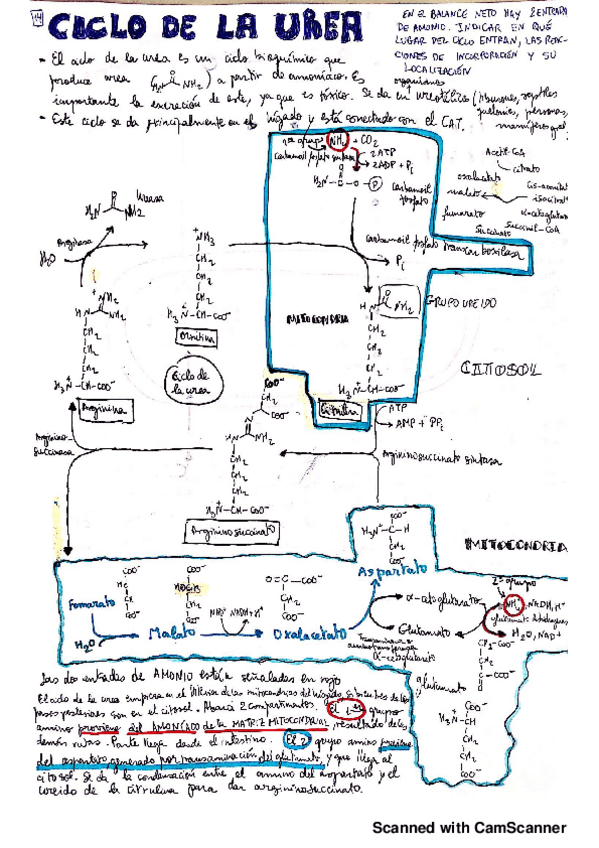 14
CICLO DE LA UREA
EN EL BALANCE NETO HAY 2 ENTRADAS
DE AMONIO. INDICAR EN QUÉ
LUGAR DEL CICLO ENTRAN, LAS REAC-
CIONES DE INCORPORACIÓN Y SU
LOCALIZACIÓN
- El ciclo de la urea es un ciclo bioquímico que
produce urea ( NH₂ ) a partir de amoniaco. Es
organismos
importante la excreción de este, ya que es tóxico. Se da en ureotélicos (tiburones, reptiles
personas,
mamíferos
- Este ciclo se da principalmente en el hígado y está conectado con el CAT.
1er grupo NH₃ + CO₂
carbamoil fosfato sintasa
2ATP
2ADP + Pi
H₂N-C-O-P
carbamoil
fosfato
Acetil-CoA
citrato
oxalacetato
malato
fumarato
Succinato
Succinil-CoA
Urea
H₂N NH₂
Arginasa
H₂O
Carbamoil fosfato transcarboxilasa
Pi
GRUPO UREIDO
MITOCONDRIA
CITOSOL
Ornitina
Ciclo de
la urea
Citrulina
Arginina
ATP
AMP + PPi
Arginino
succinasa
Argininosuccinato sintasa
Argininosuccinato
MITOCONDRIA
Aspartato
2º grupo
NH₃ NADH, H⁺
H₂O, NAD⁺
α-cetoglutarato
Glutamato
α-cetoglutarato
glutamato
Fumarato
H₂O
Malato
NAD⁺ NADH+H⁺
Oxalacetato
Las dos entradas de AMONIO están señaladas en rojo
El ciclo de la urea empieza en el interior de las mitocondrias del hígado, si bien tres de los
pasos posteriores son en el citosol. Abarca 2 compartimentos. El 1er grupo
amino proviene del AMONIACO de la MATRIZ MITOCONDRIAL, resultado de las
demás rutas. Parte llega desde el intestino. El 2º grupo amino proviene
del aspartato, generado por transaminación del glutamato, y que llega al
citosol. Se da la condensación entre el amino del aspartato y el
ureido de la citrulina para dar argininosuccinato.
Scanned with CamScanner